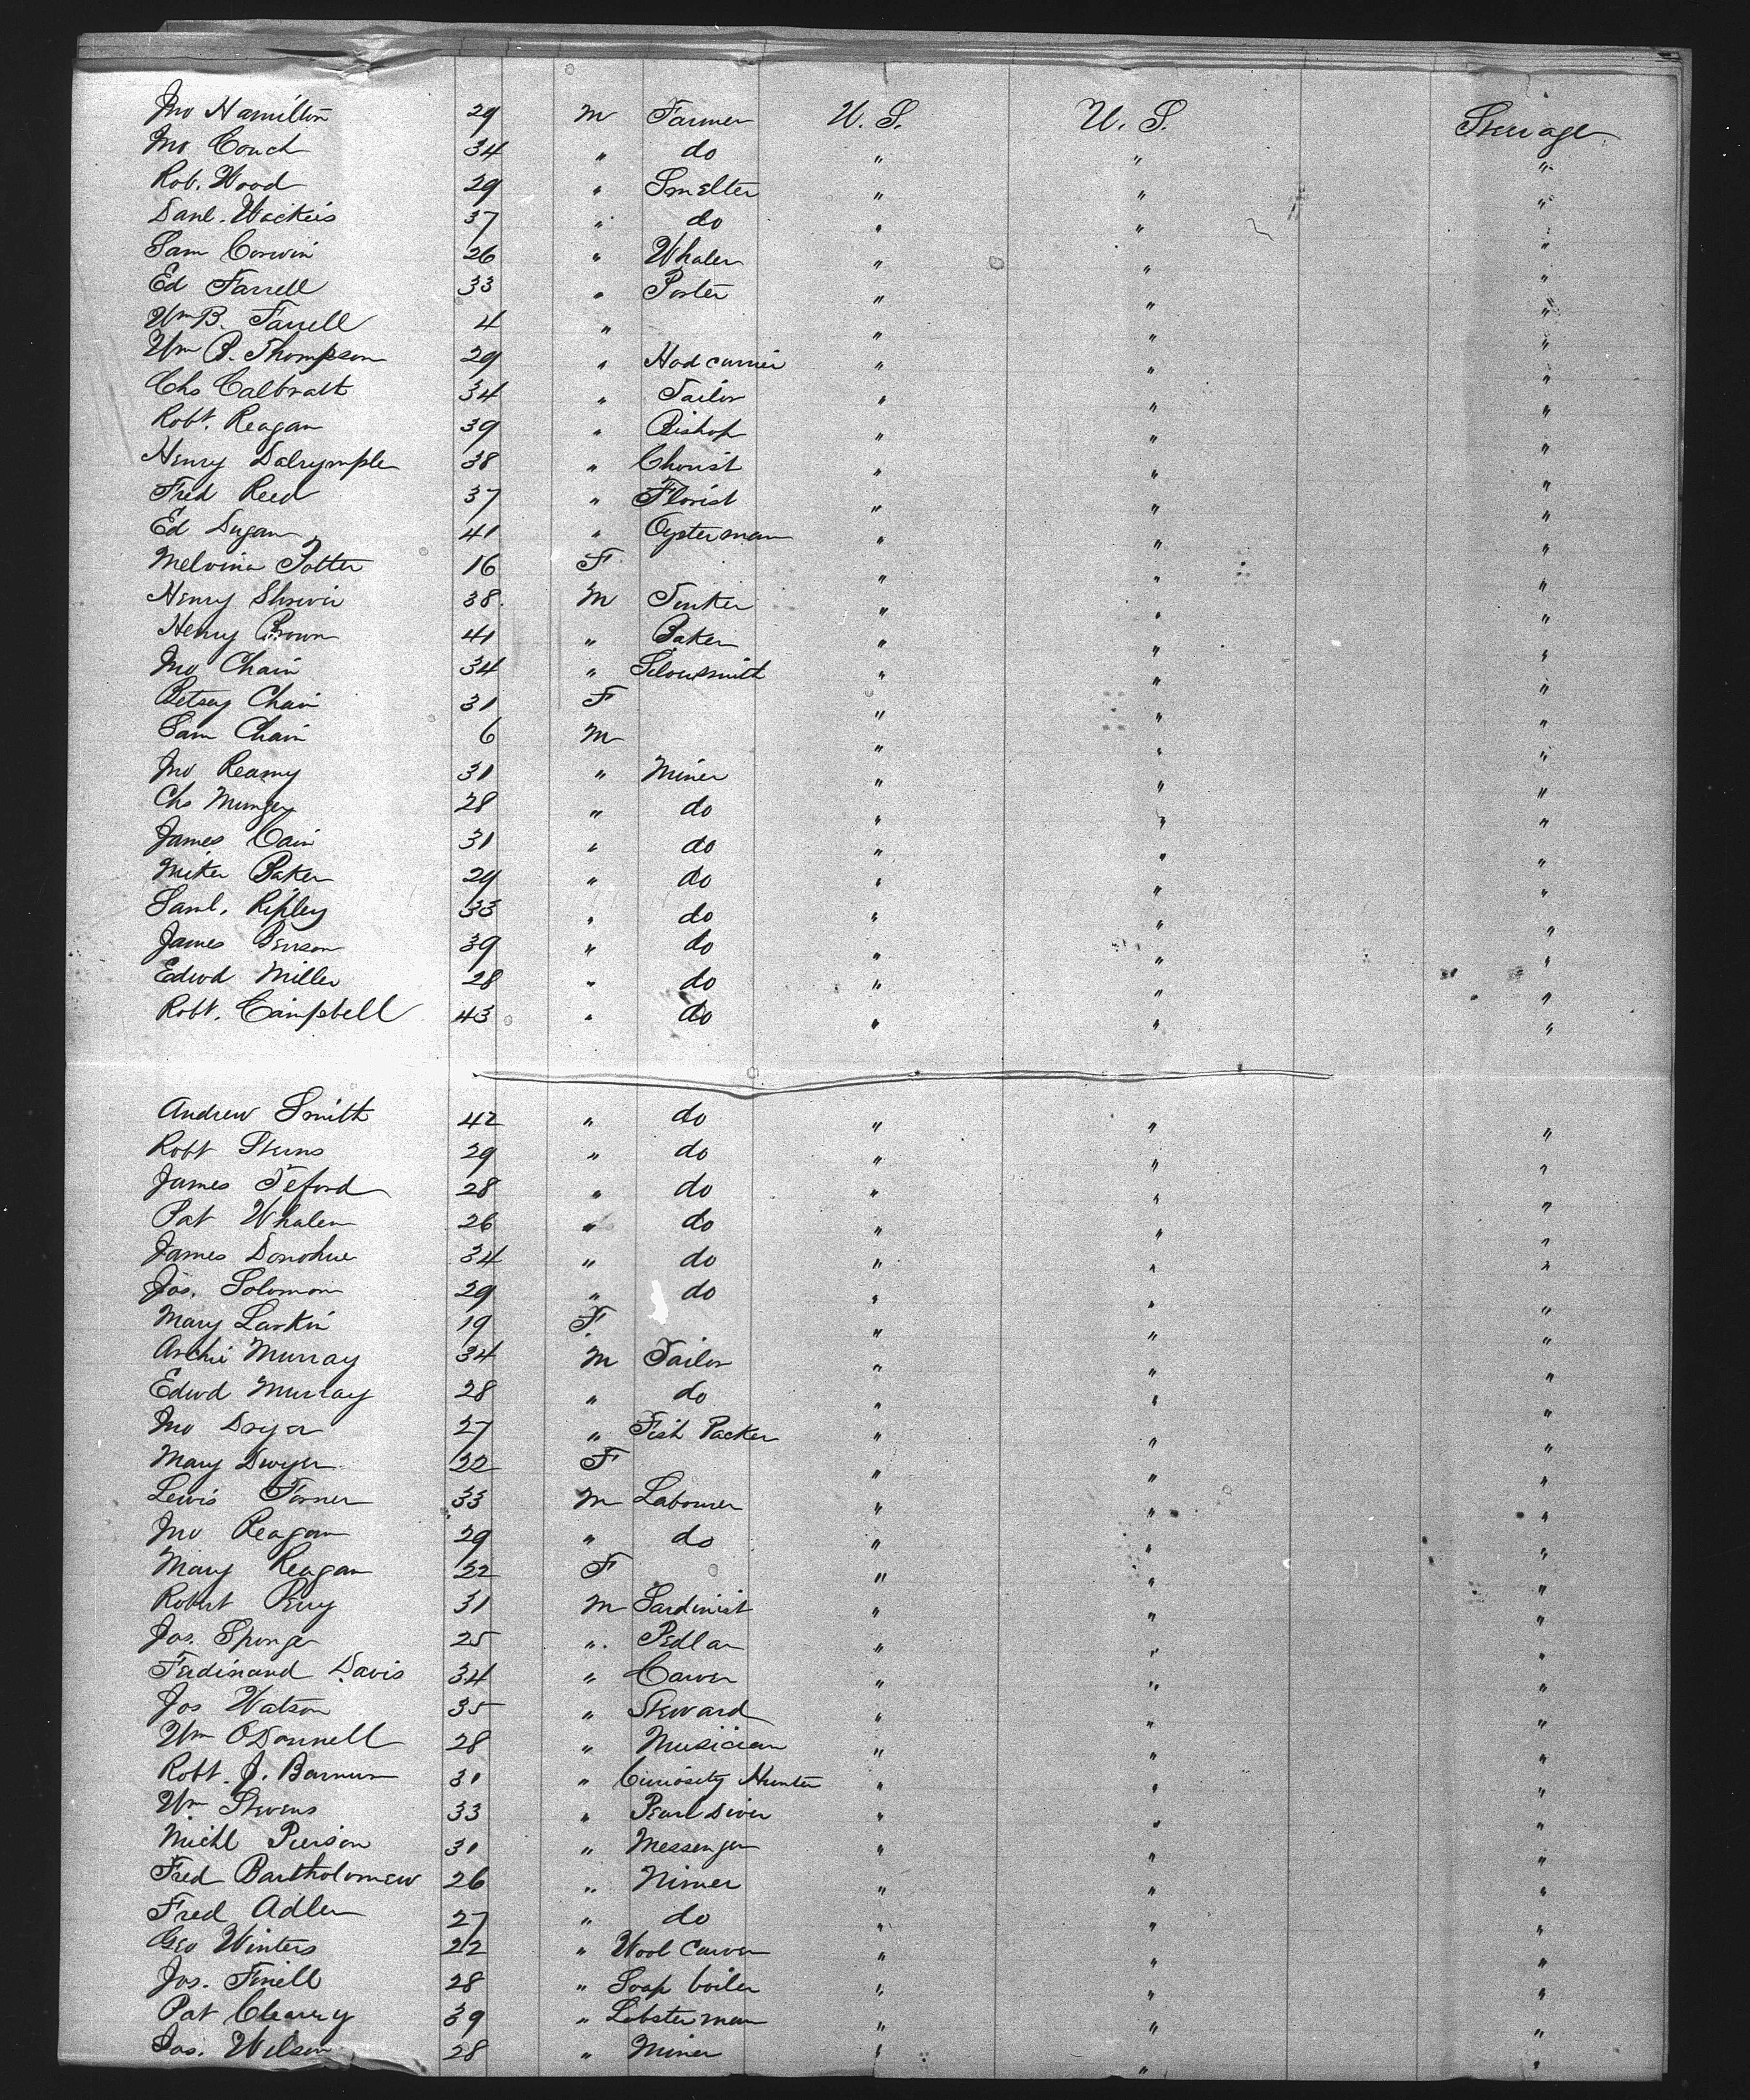 Jno Hamilton 29 M Farmer U.S. U.S. Steerage
Jno Couch 34 " do " " "
Rob. Wood 29 " Smelter " " "
Danl. 37 " do " " "
Sam Corwin 26 " Whaler " " "
Ed Farrell 33 " Porter " " "
Wm B. Farrell 4 " " " "
Wm P. Thompson 29 " Hod carrier " " "
Chs Calbratt 34 " Tailor " " "
Robt. Reagan 39 " Bishop " " "
Henry Dalrymple 38 " Chorist " " "
Fred Reed 37 " Florist " " "
Ed Dugan 41 " Oysterman " " "
Melvina Potter 16 F " " "
Henry Shriver 38 M Tinker " " "
Henry Brown 41 " Baker " " "
Jno Chain 34 " Silversmith " " "
Betsey Chain 31 F " " "
Sam Chain 6 M " " "
Jno Reamy 31 " Miner " " "
Chs Munger 28 " do " " "
James Cain 31 " do " " "
Miker Baker 29 " do " " "
Saml. Ripley 33 " do " " "
James Benson 39 " do " " "
Edwd Miller 28 " do " " "
Robt. Campbell 43 " do " " "
Andrew Smith 42 " do " " "
Robt Sterns 29 " do " " "
James Teford 28 " do " " "
Pat Whalen 26 " do " " "
James Donohue 34 " do " " "
Jos. Solomon 29 " do " " "
Mary Larkin 19 F " " "
Archie Murray 34 M Tailor " " "
Edwd Murray 28 " do " " "
Jno Dwyer 27 " Fish Packer " " "
Mary Dwyer 22 F " " "
Lewis Forner 33 M Labourer " " "
Jno Reagan 29 " do " " "
Mary Reagan 22 F " " "
Robert Perry 31 M Sardinist " " "
Jos. Sponge 25 " Pedlar " " "
Ferdinand Davis 34 " Carver " " "
Jos Watson 35 " Steward " " "
Wm O'Donnell 28 " Musician " " "
Robt. J. Barnum 31 " Curiosity Hunter " " "
Wm Stevens 33 " Pearl diver " " "
Michl Pierson 31 " Messenger " " "
Fred Bartholomew 26 " Miner " " "
Fred Adler 27 " do " " "
Geo Winters 22 " Wool Carver " " "
Jos. Finell 28 " Soap boiler " " "
Pat Clearey 39 " Lobster man " " "
Jos. Wilson 28 " Miner " " "